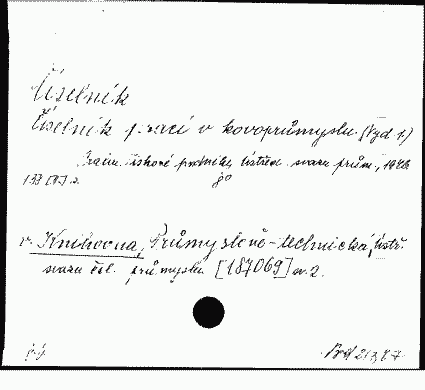 Číselník
Číselník prací v kovoprůmyslu. (Vyd. 1.)
Praha. Tiskové podniky Ústřed. svazu prům., 1946.
133 [1] s. 8°
v. Knihovna, Průmyslově-technická, Ústř.
svazu čsl. průmyslu [187069] sv. 2.